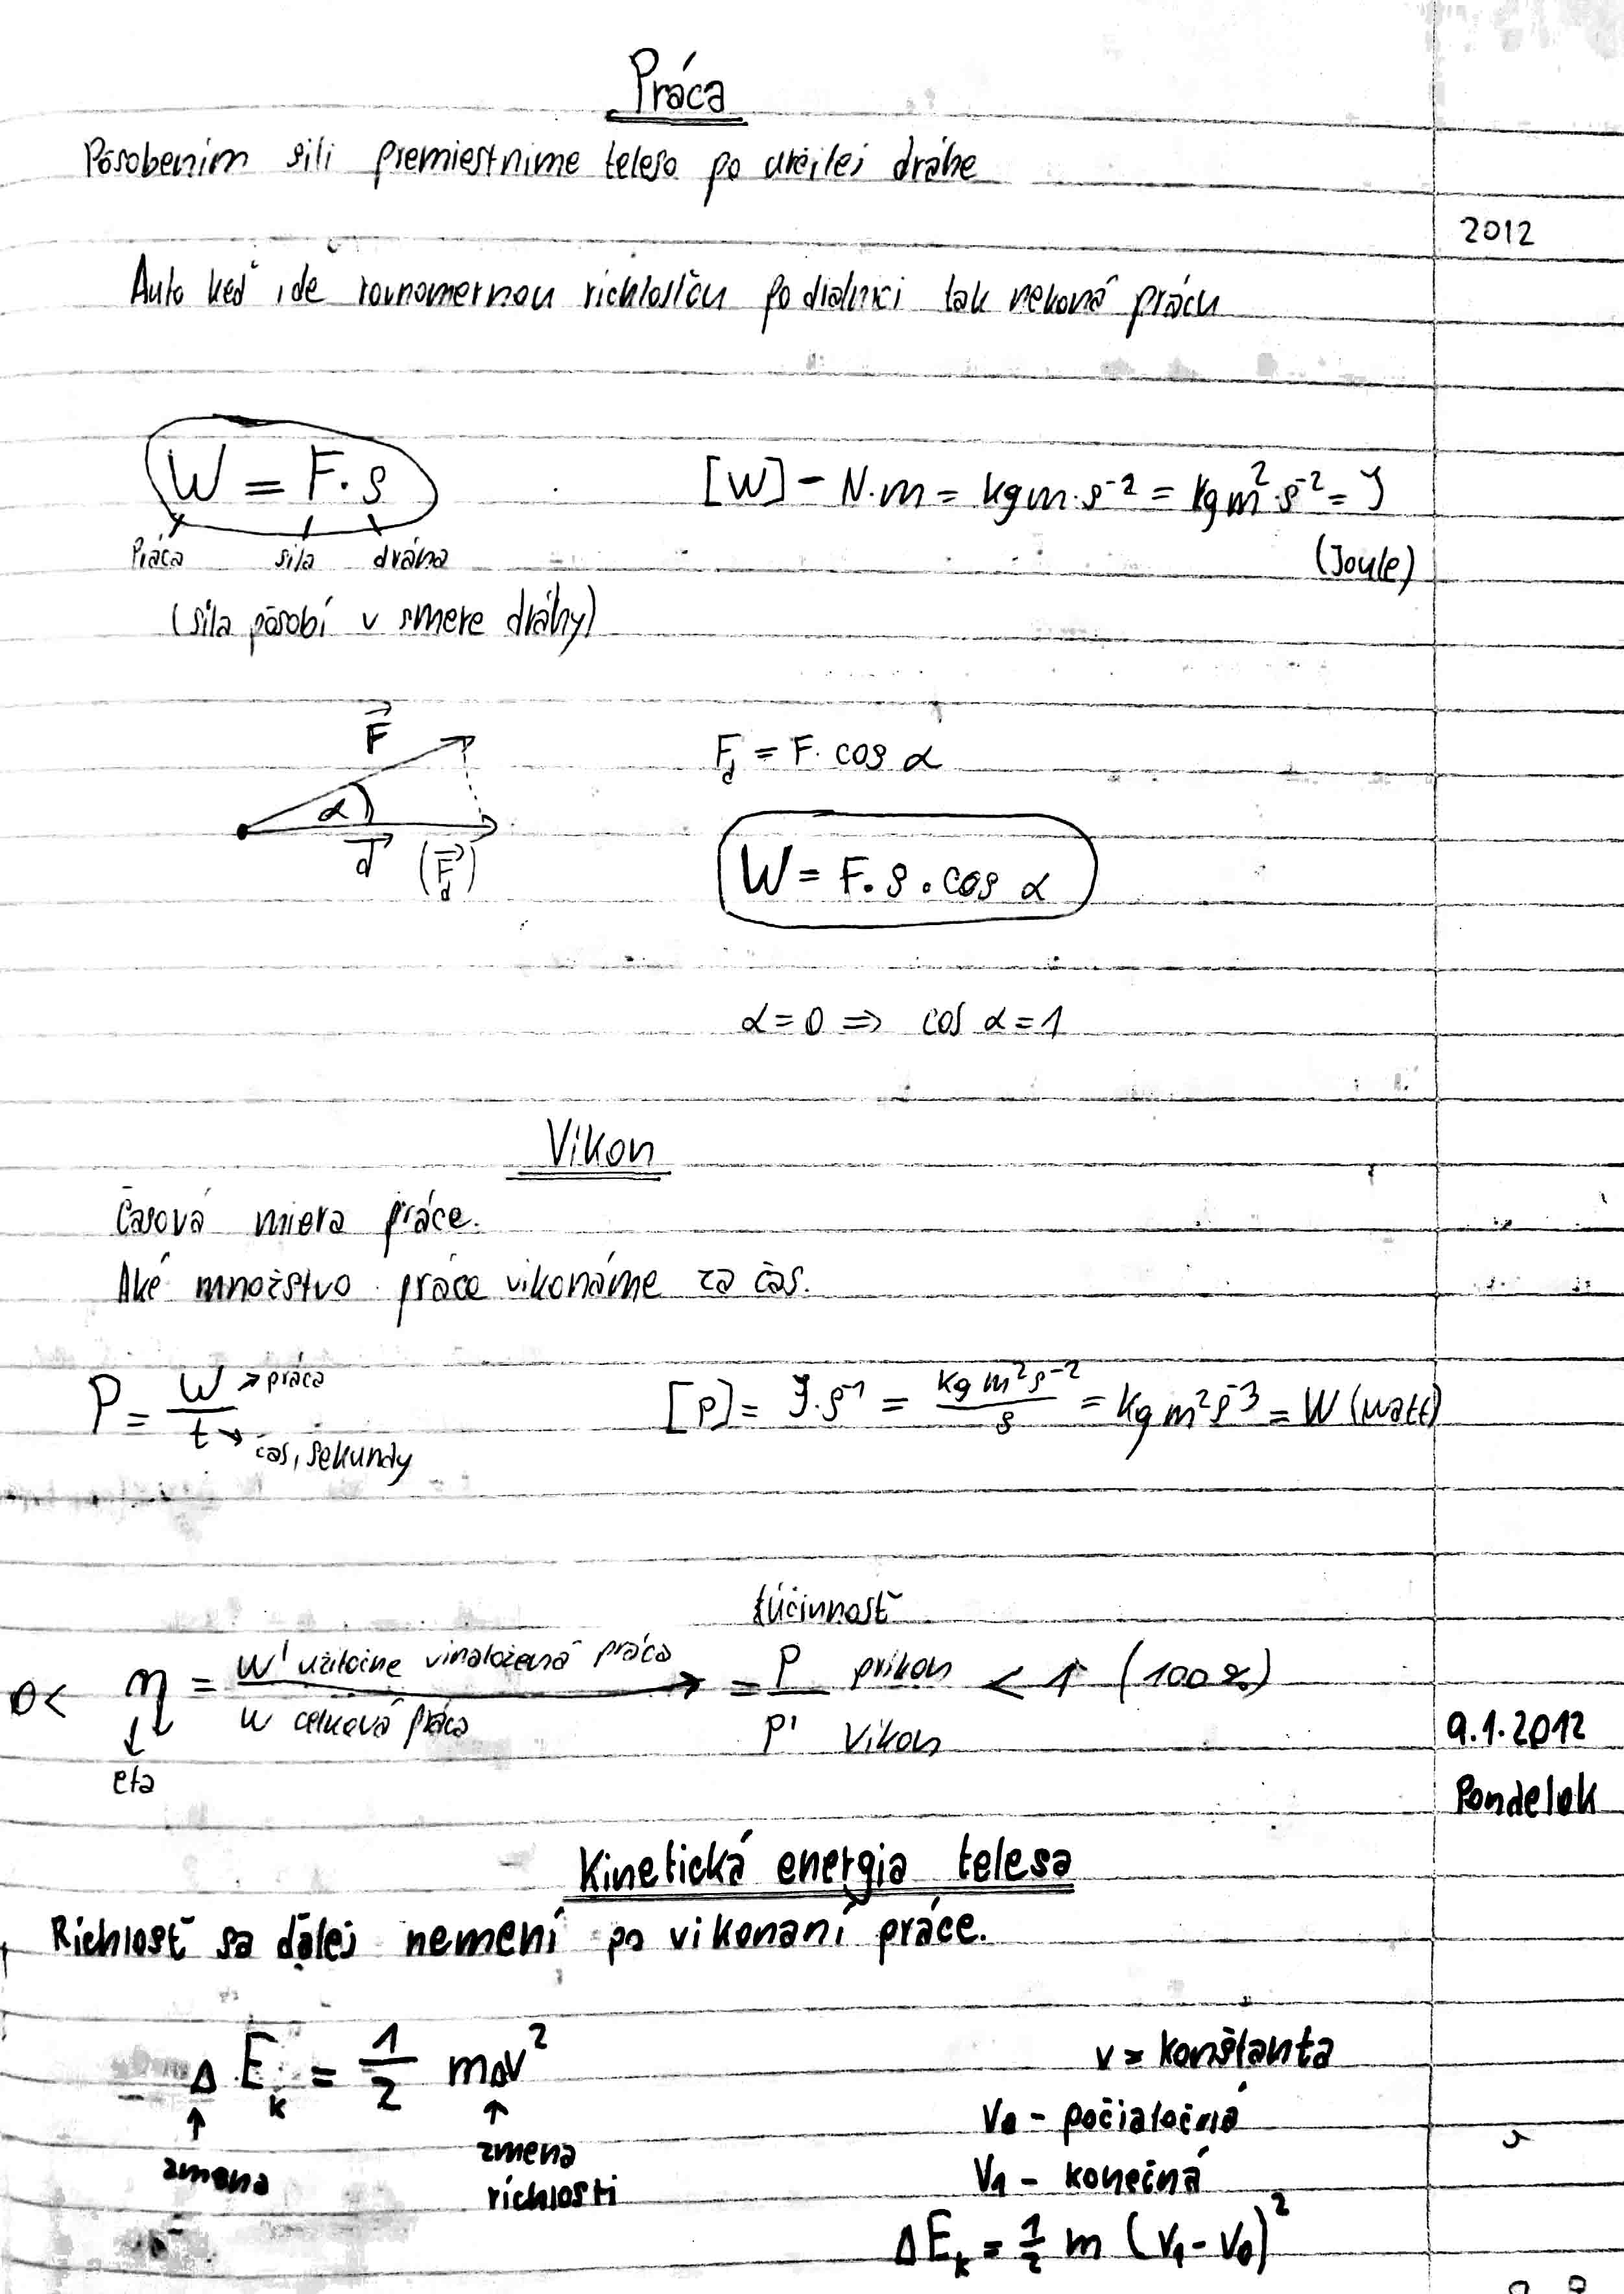 Práca
Pôsobením sili premiestnime teleso po určitej dráhe
2012
Auto keď ide rovnomernou richlosťou po dialnici tak nekoná prácu
W = F · s
[W] - N·m = kgm·s⁻² = kgm²·s⁻² = J
Práca sila dráha
(Joule)
(sila pôsobí v smere dráhy)
F⃗
F_d = F · cos α
α
d⃗ (F⃗_d)
W = F · s · cos α
α = 0 ⇒ cos α = 1
Vikon
časová miera práce.
Aké množstvo práce vikonáme za čas.
P = W/t
→ práca
→ čas, sekundy
[P] = J·s⁻¹ = kg m² s⁻²/s = kg m² s⁻³ = W (watt)
účinnosť
0 < η = W' užitočne vinaložená práca / W celková práca → = P príkon / P' Vikon < 1 (100%)
eta
9.1.2012
Pondelok
Kinetická energia telesa
Richlosť sa ďalej nemení po vikonaní práce.
Δ E_k = 1/2 mΔv²
v = konštanta
↑ zmena
↑ zmena richlosti
v₀ - počiatočná
v₁ - konečná
ΔE_k = 1/2 m (v₁ - v₀)²